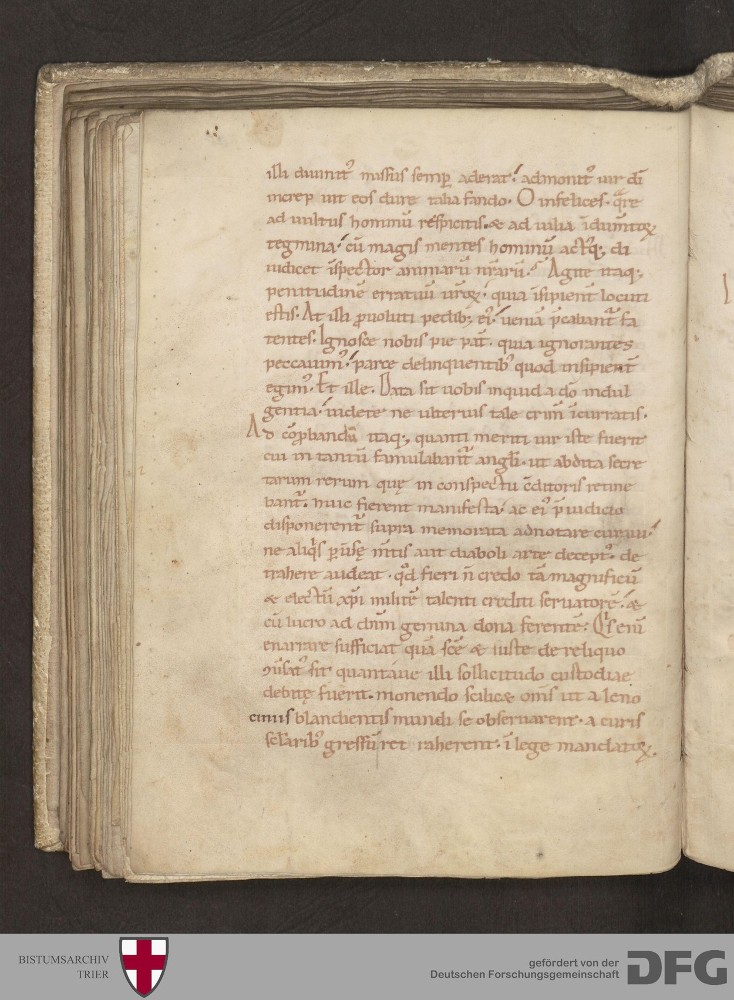 illi diuinit᷒ missus semꝑ aderat. admonit᷒ uir dī
increp uit eos dure talia fando. O infelices. qͣre
ad uultus hominū respicitis. & ad uilia īdum̄toꝝ
tegmina. cū magis mentes hominū act᷒q; di
iudicet īspector animarū nr̄arū. Agite itaq;
penitudinē erratuū ur̄oꝝ. quia īsipient̄ locuti
estis. At illi ꝓuoluti pedib; ei᷒. ueniā p̄cabant̄ fa
tentes. Ignosce nobis pie pat̄. quia ignorantes
peccauim᷒. parce delinquentib᷒ quod insipient̄
egim᷒. Et ille. Data sit uobis inquid a dō indul
gentia. uidete ne ulterius tale crim̄ īcurratis.
Ad cōꝓbandū itaq; quanti meriti uir iste fuerit
cui in tantū famulabant̄ angl̄i. ut abdita secre
tarum rerum quę in conspectu c̄ditoris retine
bant̄. huic fierent manifesta. ac ei᷒ p̄iudicio
disponerent̄ supra memorata adnotare curaui.
ne aliq̇s ꝑuersę m̄tis aut diaboli arte decept᷒. de
trahere audeat. qd̄ fieri n̄ credo tā magnificū
& electū xp̄i militē talenti crediti seruatorē. &
cū lucro ad dn̄m gemina dona ferentē. Q̇s enī
enarrare sufficiat quā sc̄e & iuste de reliquo
sit quantaue illi sollicitudo custodiae
debitę fuerit. monendo scilic& om̄s ut a leno
ciniis blandientis mundi se obseruarent. a curis
scl̄aribꝰ gressū ret raherent. ī lege mandatoꝝ
BISTUMSARCHIV
TRIER
gefördert von der
Deutschen Forschungsgemeinschaft
DFG